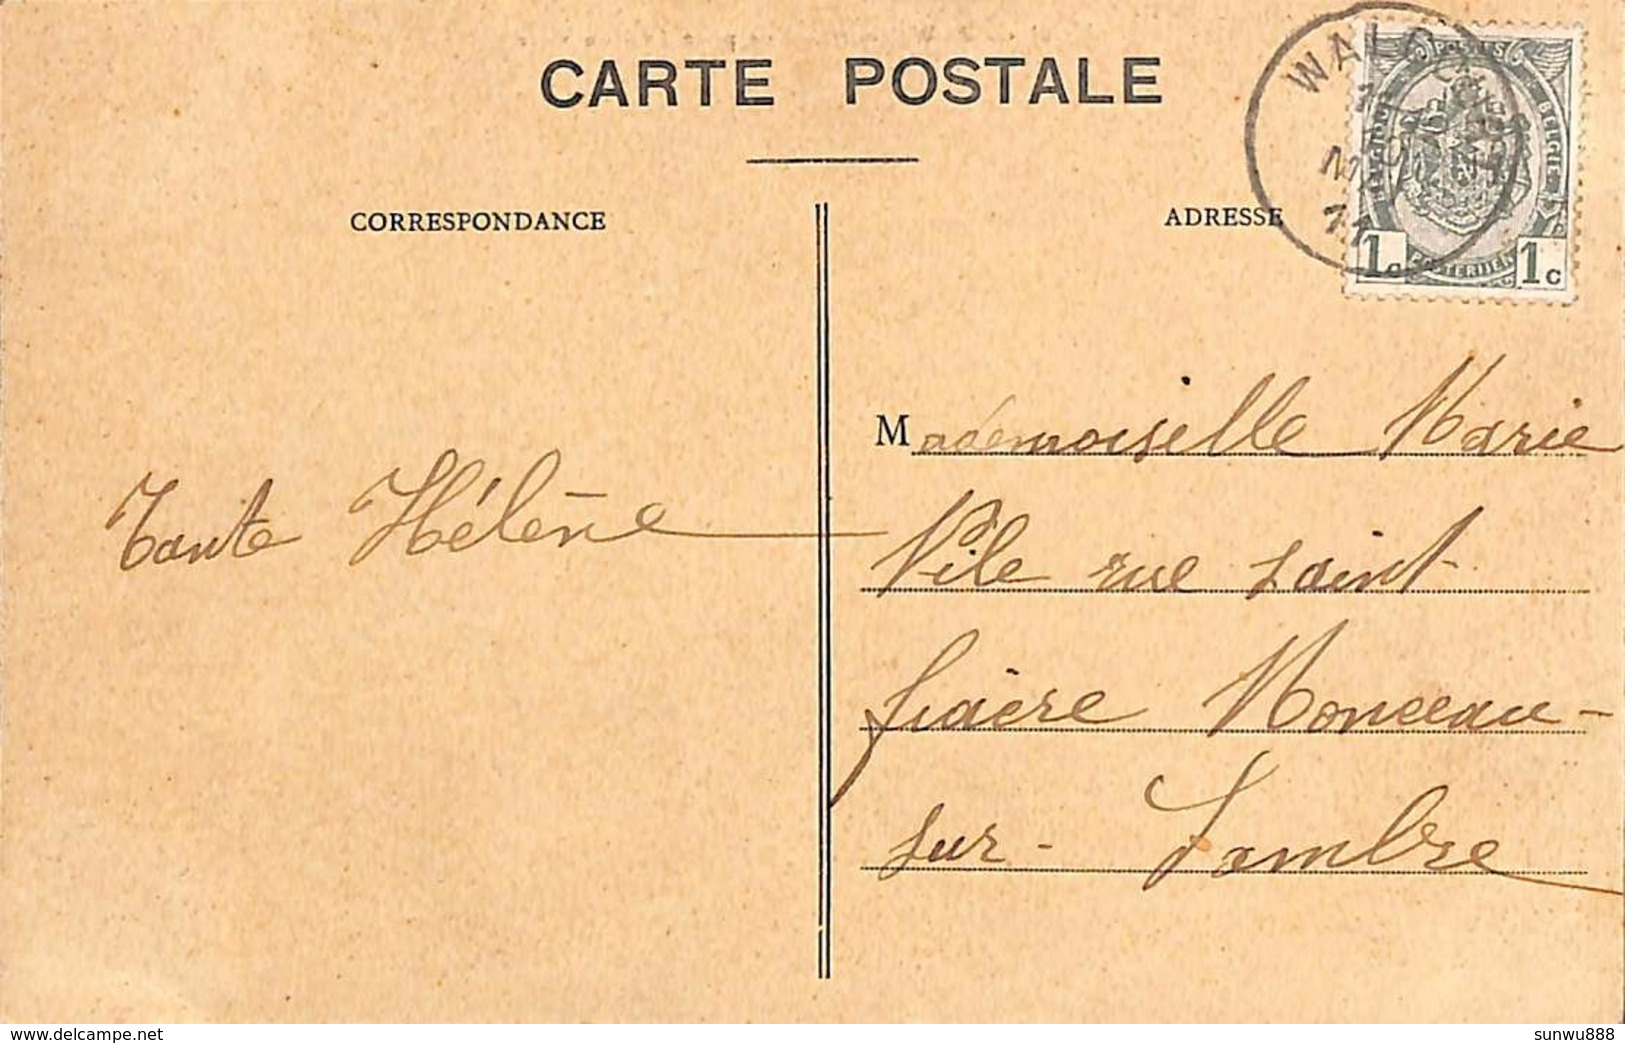 CARTE POSTALE
CORRESPONDANCE
ADRESSE
WALC
11
POSTES
BELGIQUE
BELGIE
POSTERIJEN
1c
1c
Mademoiselle Marie
Pile rue saint
fiacre Monceau-
sur-Sambre
Tante Hélène
delcampe.net
sunwu888